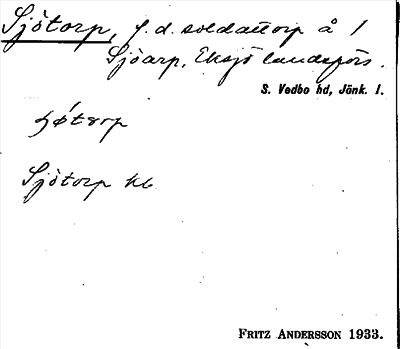 Sjötorp, f. d. soldattorp å 1
Sjöarp, Eksjö landsförs.
S. Vedbo hd, Jönk. l.
Sjötorp kb
FRITZ ANDERSSON 1933.